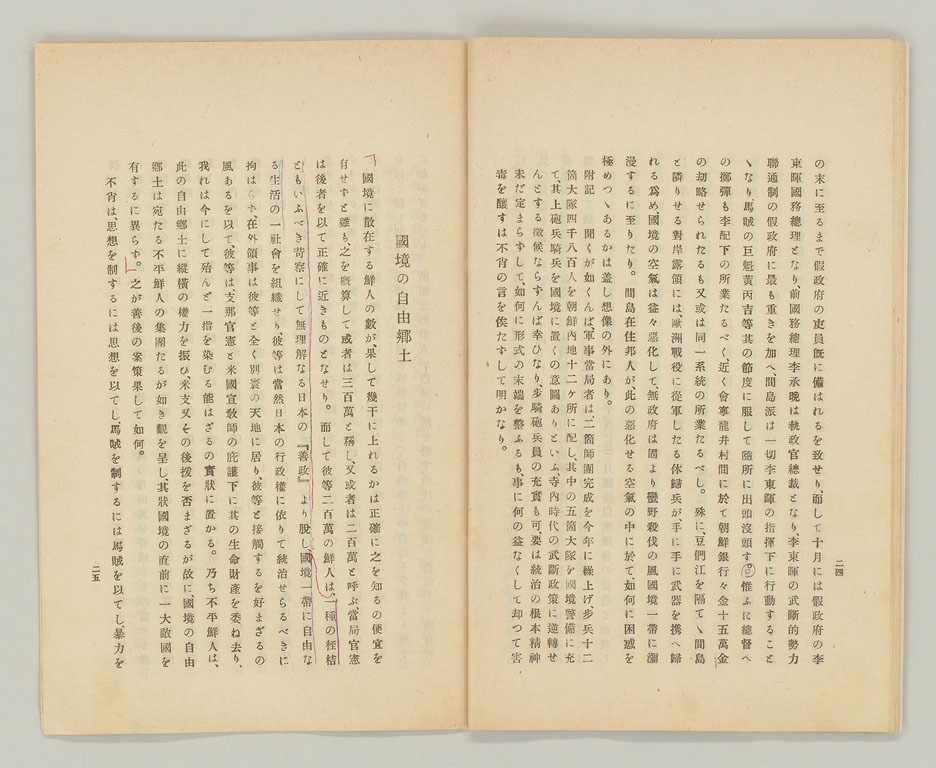 二四
の末に至るまで假政府の吏員既に備はれるを致せり、而して十月には假政府の李
東暉國務總理となり、前國務總理李承晩は執政官總裁となり、李東暉の武斷的勢力
聯通制の假政府に最も重きを加へ、間島派は一切李東暉の指揮下に行動すること
ゝなり、馬賊の巨魁黃丙吉等其の節度に服して隨所に出頭沒頭す。惟ふに總督へ
の擲彈も李配下の所業たるべく、近く會寧龍井村間に於て朝鮮銀行々金十五萬金
の刧略せられたるも又或は同一系統の所業たるべし。殊に、豆們江を隔てゝ間島
と隣りせる對岸露領には、歐洲戰役に從軍したる休歸兵が、手に手に武器を携へ歸
れる爲め、國境の空氣は益々惡化して、無政府は固より蠻野殺伐の風國境一帶に瀰
漫するに至りたり。間島在住邦人が、此の惡化せる空氣の中に於て、如何に困惑を
極めつゝあるかは蓋し想像の外にあり。
附記 聞くが如くんば、軍事當局者は、二箇師團完成を今年に繰上げ步兵十二
箇大隊四千八百人を朝鮮內地十二ケ所に配し、其中の五箇大隊を國境警備に充
て、其上砲兵騎兵を國境に置くの意圖ありといふ、寺內時代の武斷政策に逆轉せ
んとする徵候ならずんば幸ひなり、步騎砲兵員の充實も可、要は統治の根本精神
未だ定まらずして、如何に形式の末端を整ふるも、事に何の益なくして却つて害
毒を釀すは不肖の言を俟たずして明かなり。
國境の自由鄕土
國境に散在する鮮人の數が、果して幾千に上れるかは正確に之を知るの便宜を
有せずと雖も、之を概算して或者は三百萬と稱し、又或者は二百萬と呼ぶ、當局官憲
は後者を以て正確に近きものとなせり。而して彼等二百萬の鮮人は、一種の桎梏
ともいふべき苛察にして無理解なる日本の『善政』より脫し、國境一帶に自由な
る生活の一社會を組織せり、彼等は當然日本の行政權に依りて統治せらるべきに
拘はらず、在外領事は彼等と全く別寰の天地に居り、彼等と接觸するを好まざるの
風あるを以て、彼等は、支那官憲と米國宣敎師の庇護下に其の生命財產を委ね去り、
我れは今にして殆んど一指を染むる能はざるの實狀に置かる。乃ち不平鮮人は、
此の自由鄕土に縱橫の權力を振ひ、米支又その後援を否まざるが故に、國境の自由
鄕土は宛たる不平鮮人の集團たるが如き觀を呈し、其狀國境の直前に一大敵國を
有するに異らず。之が善後の案策果して如何。
不肖は、思想を制するには思想を以てし、馬賊を制するには馬賊を以てし、暴力を
二五